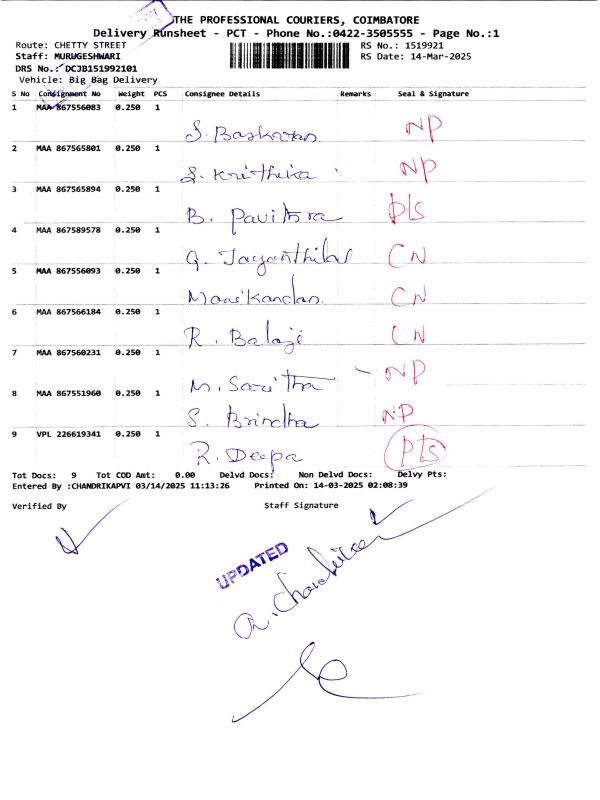 THE PROFESSIONAL COURIERS, COIMBATORE
Delivery Runsheet - PCT - Phone No.:0422-3505555 - Page No.:1
Route: CHETTY STREET RS No.: 1519921
Staff: MURUGESHWARI RS Date: 14-Mar-2025
DRS No.: DCJB151992101
Vehicle: Big Bag Delivery
S No Consignment No Weight PCS Consignee Details Remarks Seal & Signature
1 MAA 867556083 0.250 1
S. Baskaran NP
2 MAA 867565801 0.250 1
S. Krithika NP
3 MAA 867565894 0.250 1
B. Pavithra pls
4 MAA 867589578 0.250 1
G. Jayanthilal CN
5 MAA 867556093 0.250 1
Manikandan CN
6 MAA 867566184 0.250 1
R. Balaji CN
7 MAA 867560231 0.250 1
M. Saritha - NP
8 MAA 867551960 0.250 1
S. Brindha NP
9 VPL 226619341 0.250 1
R. Deepa pts
Tot Docs: 9 Tot COD Amt: 0.00 Delvd Docs: Non Delvd Docs: Delvy Pts:
Entered By :CHANDRIKAPVI 03/14/2025 11:13:26 Printed On: 14-03-2025 02:08:39
Verified By Staff Signature
UPDATED